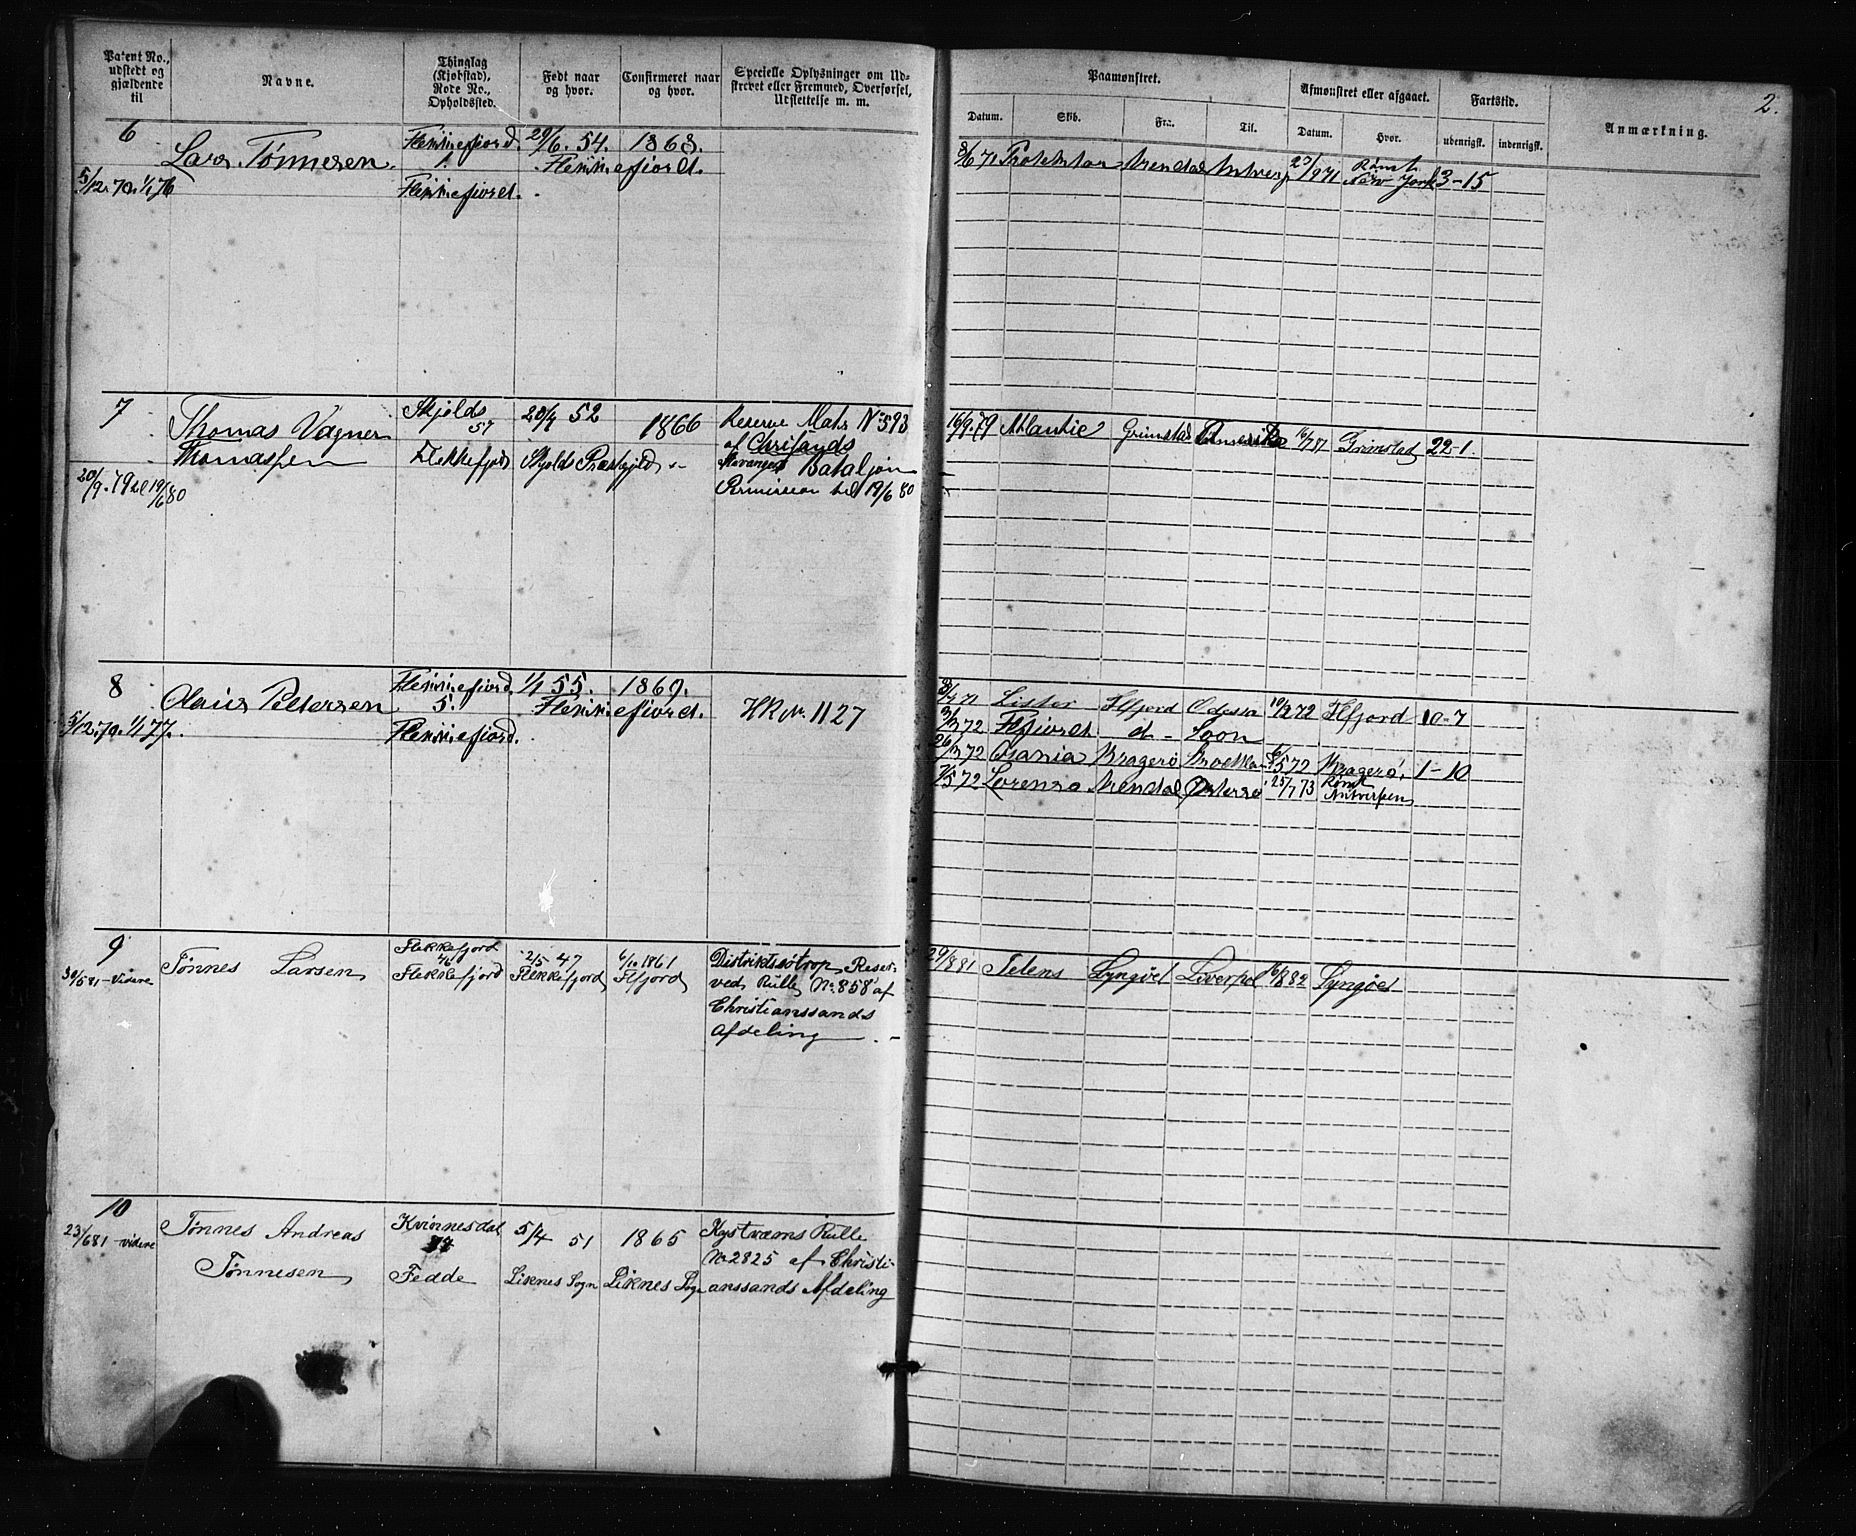 Patent No., udstedt og gjældende til
Navne.
Thinglag (Kjøbstad), Rode No., Opholdssted.
Født naar og hvor.
Confirmeret naar og hvor.
Specielle Oplysninger om Udskrevet eller Fremmed, Overførsel, Udslettelse m. m.
Paamønstret.
Datum.
Skib.
Fra.
Til.
Afmønstret eller afgaaet.
Datum.
Hvor.
Fartstid.
udenrigsk.
indenrigsk.
Anmærkning.
2.
6
Lars Tønnesen
5/12.70. 1/1 76
Flekkefjord
1.
Flekkefjord.
29/6. 54. 1868.
Flekkefjord.
8/6 71 Protektor Arendal Antverp 23/9 71 Rømt New York 3-15
7
Thomas Vagner
Thomassen
20/9. 79 til 19/6 80
Skjolds
57
Flekkefjord
20/4 52
1866
Skjolds Præstgjeld
Reserve Matr No 593
af Chrisands
Stavangers Bataljon
Permission til 19/6 80
16/9 79 Atlantic Grimstad Grimstad 22-1.
8
Claus Pettersen
5/12.70. 1/1 77.
Flekkefjord
5.
Flekkefjord.
1/1 55. 1869.
Flekkefjord.
HR No. 1127
71 Lister Flfjord Odessa 19/2 72 Flfjord 10-7
72 Flfjord d - Soon
26/3 72 Osania Kragerø 572 Kragerø, 1-10
7/5 72 Lorenzo Arendal Østersø 25/7 73 Rømt Antverpen
9
Tønnes Larsen
30/5 81 - Videre
Flekkefjord
46
Flekkefjord
2/5 47
Flekkefjord
6/10 1861
Flfjord
Distriktssøtrop Reser-
ved Rulle No. 858 af
Christianssands
Afdeling
29/8 81 Telens Lyngøer Liverpol 6/8 82 Lyngøer
10
Tønnes Andreas
Tønnesen
23/6 81 - videre
Kvinnesdal
Fedde
5/4 51
Liknes Sogn
1865
Liknes Sogn
Kystværns Rulle
No 2825 af Christi-
anssands Afdeling